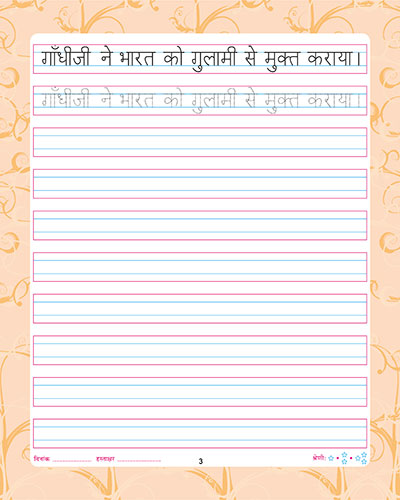 गाँधीजी ने भारत को गुलामी से मुक्त कराया।
गाँधीजी ने भारत को गुलामी से मुक्त कराया।
दिनांक ..................... हस्ताक्षर ........................ 3 श्रेणी: